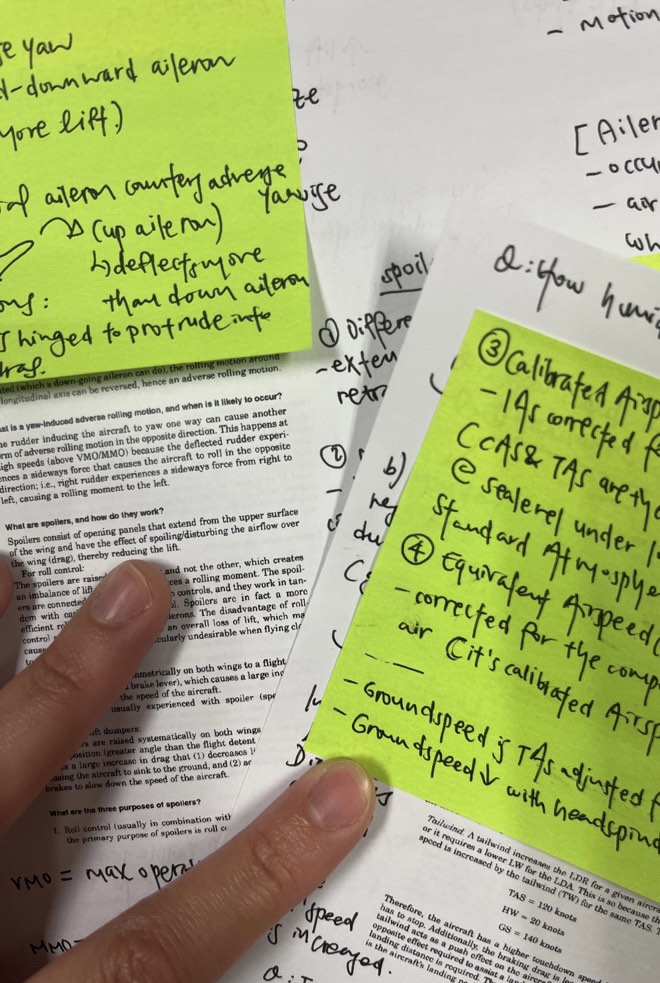 e yaw
d-downward aileron
more lift)
aileron counters adverse
yaw
(up aileron)
↳ deflects more
than down aileron
hinged to protrude into
drag.
ze
- Motion
[Ailer
- occu
- air
wh
spoil
① Differe
- exten
retr
②
b)
neg
du
Q: How humi
③ Calibrated Airsp
- IAS corrected f
(CAS & TAS are the
@ sealevel under I
Standard Atmosphe
④ Equivalent Airspeed (
- corrected for the comp
air (it's calibrated Airsp
- Groundspeed is TAS adjusted f
- Groundspeed ↓ with headspind
ted (which a down-going aileron can do), the rolling motion around
longitudinal axis can be reversed, hence an adverse rolling motion.
at is a yaw-induced adverse rolling motion, and when is it likely to occur?
he rudder inducing the aircraft to yaw one way can cause another
rm of adverse rolling motion in the opposite direction. This happens at
igh speeds (above VMO/MMO) because the deflected rudder experi-
ences a sideways force that causes the aircraft to roll in the opposite
direction; i.e., right rudder experiences a sideways force from right to
left, causing a rolling moment to the left.
What are spoilers, and how do they work?
Spoilers consist of opening panels that extend from the upper surface
of the wing and have the effect of spoiling/disturbing the airflow over
the wing (drag), thereby reducing the lift.
For roll control:
The spoilers are raised and not the other, which creates
an imbalance of lift ces a rolling moment. The spoil-
ers are connected controls, and they work in tan-
dem with Spoilers are in fact a more
efficient rol The disadvantage of roll
control an overall loss of lift, which ma
cause cularly undesirable when flying cl
mmetrically on both wings to a flight
brake lever), which causes a large inc
the speed of the aircraft.
usually experienced with spoiler (spe
ift dumpers:
rs are raised systematically on both wings
osition (greater angle than the flight detent
s a large increase in drag that (1) decreases l
sing the aircraft to sink to the ground, and (2) a
brakes to slow down the speed of the aircraft.
What are the three purposes of spoilers?
1. Roll control (usually in combination with
the primary purpose of spoilers is roll c
VMO = max oper
MMO=
speed
is increased.
Tailwind. A tailwind increases the LDR for a given aircra
or it requires a lower LW for the LDA. This is so because th
speed is increased by the tailwind (TW) for the same TAS. T
TAS = 120 knots
HW = 20 knots
GS = 140 knots
Therefore, the aircraft has a higher touchdown speed
has to stop. Additionally, the braking drag is le
tailwind acts as a push effect on the aircraf
opposite effect required to assist a lan
landing distance is required. Th
is the aircraft's landing